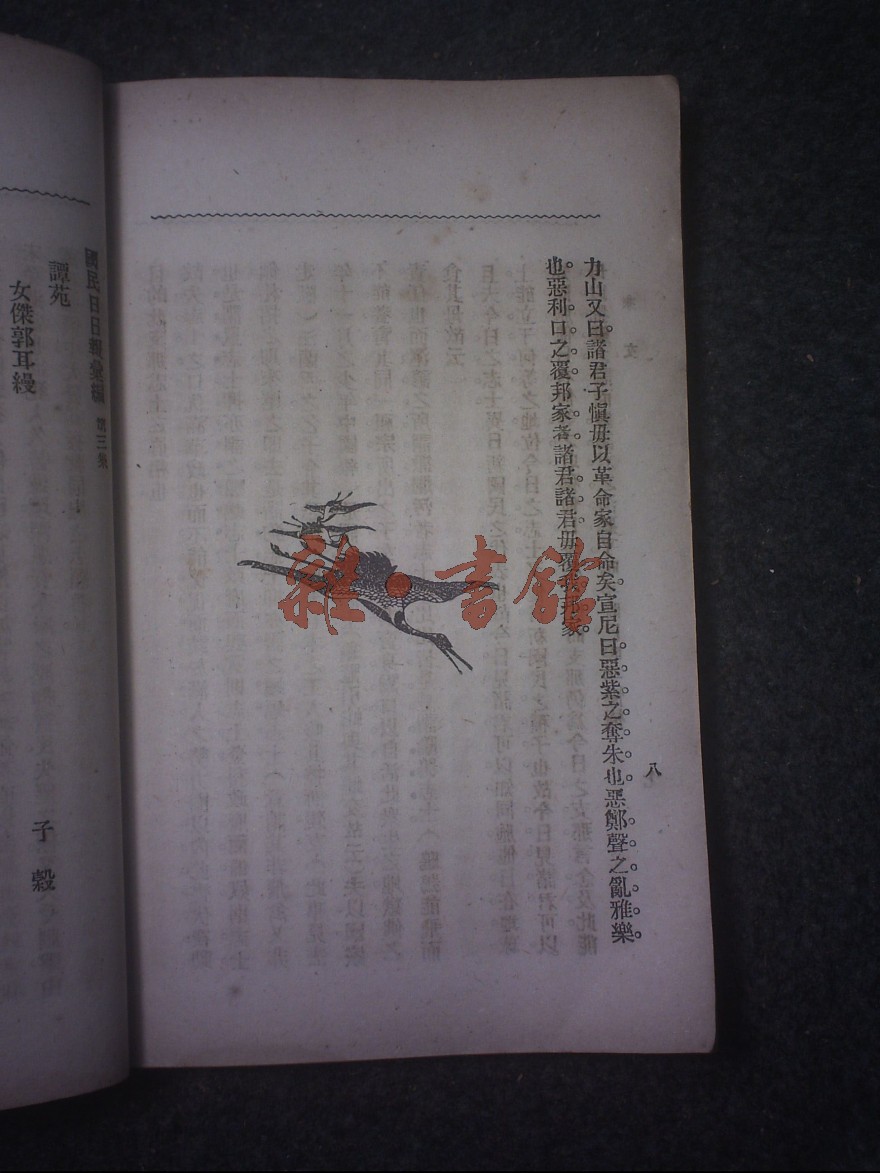 八
力山又曰諸君子愼毋以革命家自命矣宣尼曰惡紫之奪朱也惡鄭聲之亂雅樂
也惡利口之覆邦家者諸君諸君毋覆我邦家
國民日日報彙編 第三集
譚苑
女傑郭耳縵
子穀
雜·書館